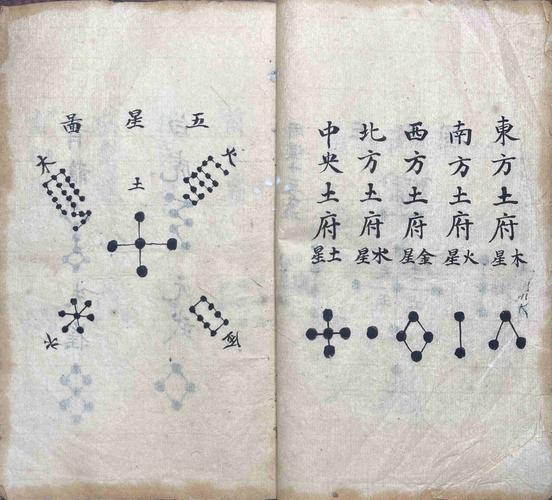 東方土府木星
南方土府火星
西方土府金星
北方土府水星
中央土府土星
五星啚
土
木
火
水